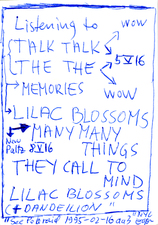 Listening to
WOW
TALK TALK
THE THE
5 V 16
MEMORIES
WOW
LILAC BLOSSOMS
MANY MANY
New Paltz 8 V 16
THINGS
THEY CALL TO
MIND
LILAC BLOSSOMS
+ DANDELION
1995-02-16